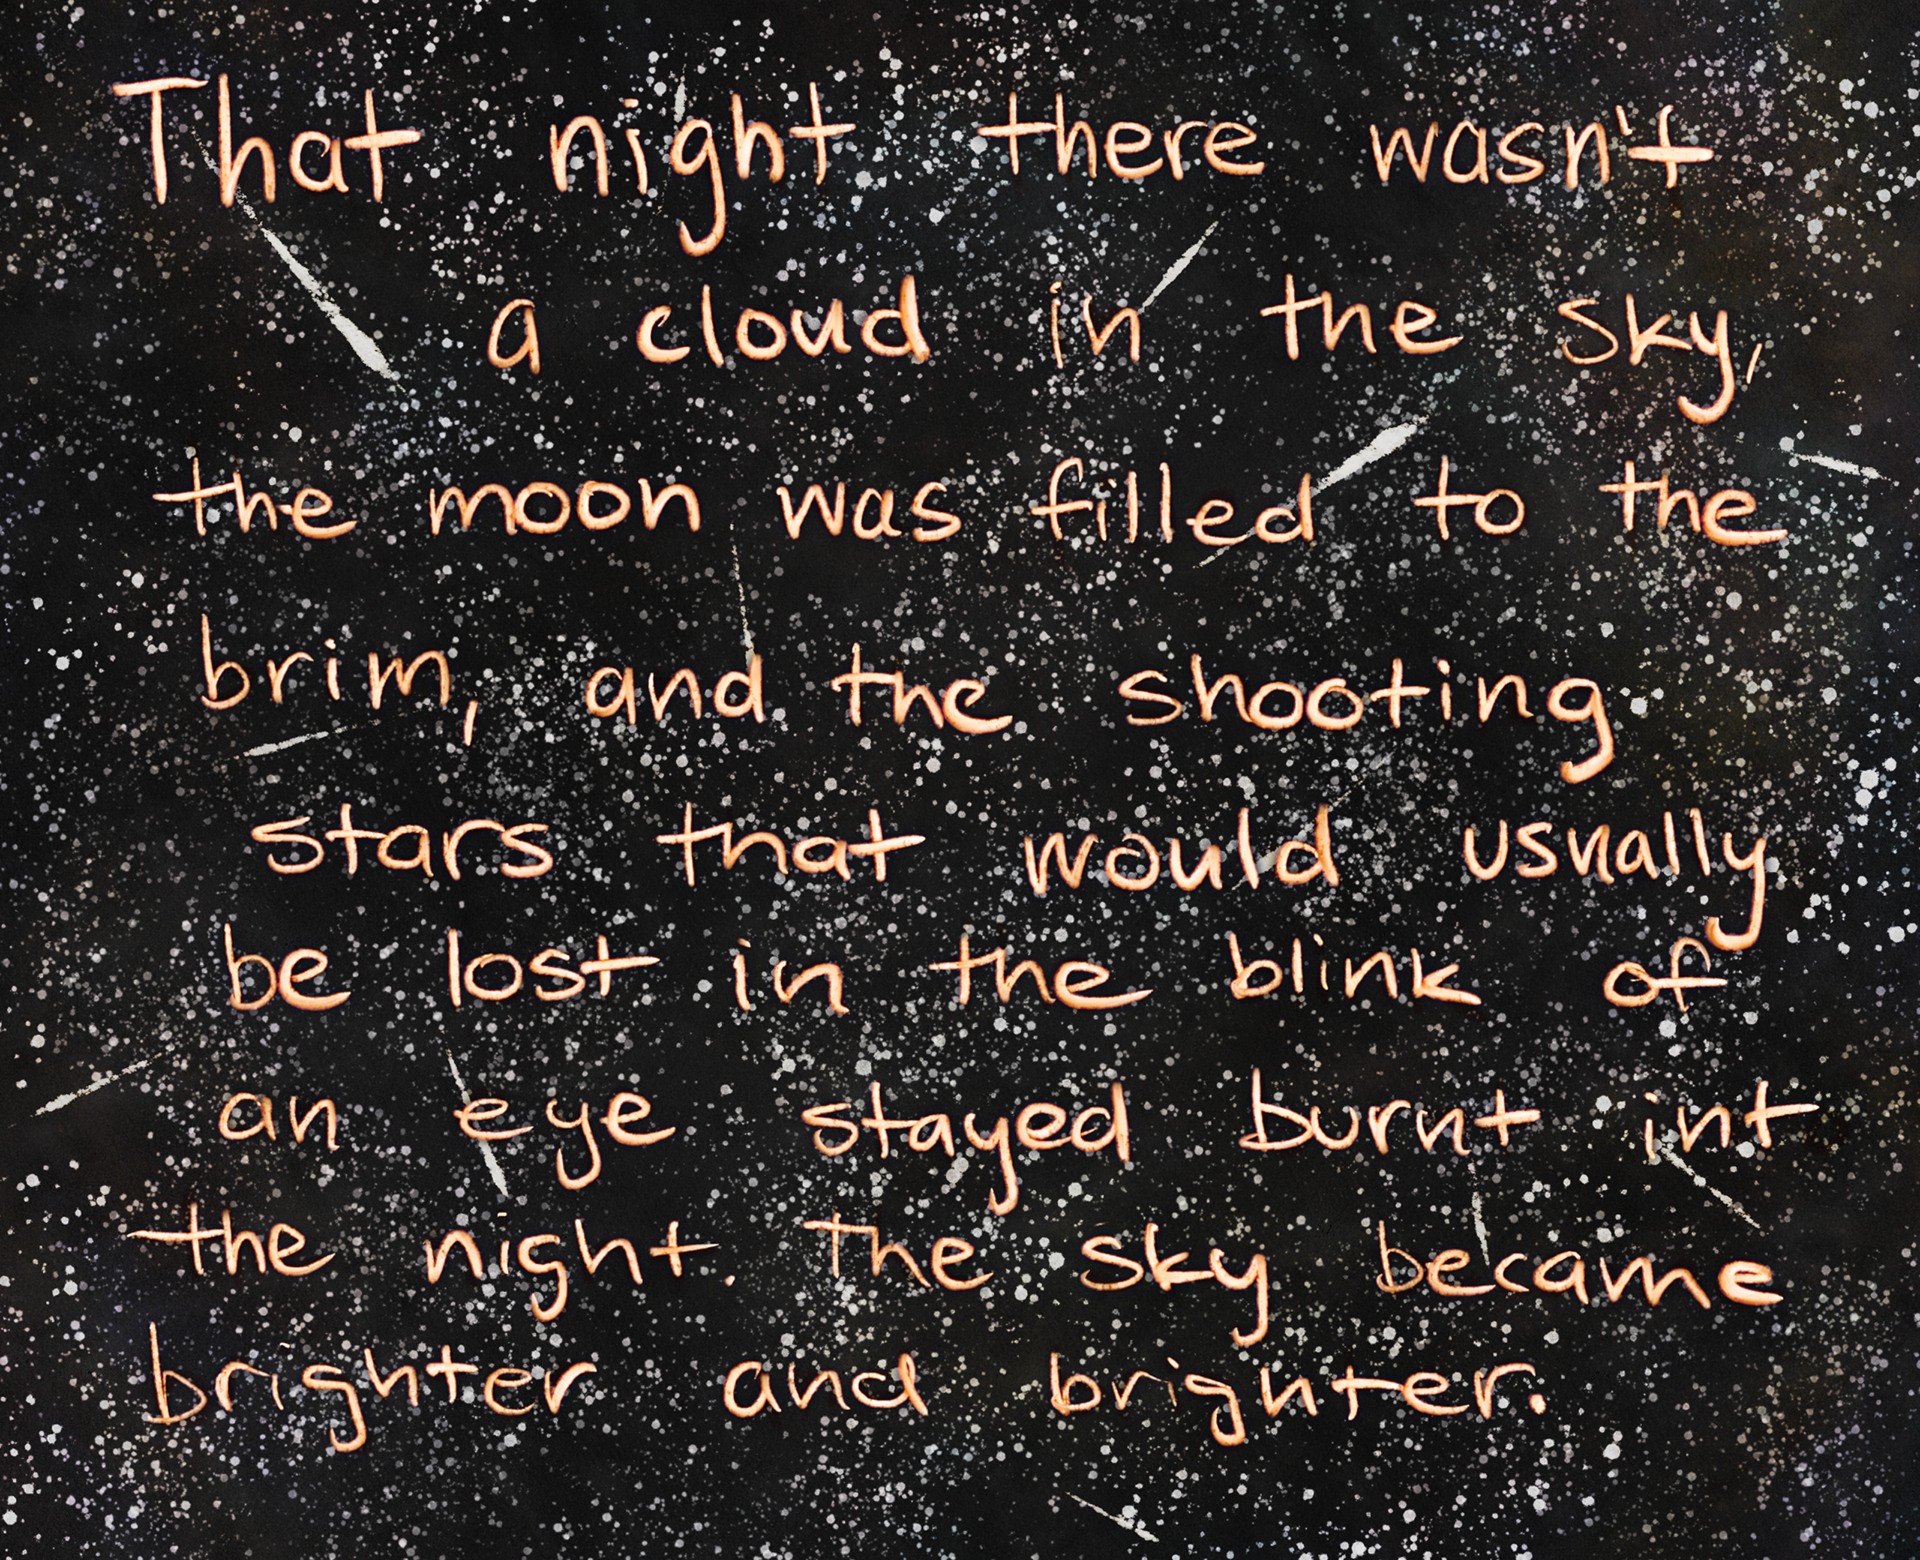 That night there wasn't
a cloud in the sky,
the moon was filled to the
brim, and the shooting
stars that would usually
be lost in the blink of
an eye stayed burnt int
the night. The sky became
brighter and brighter.